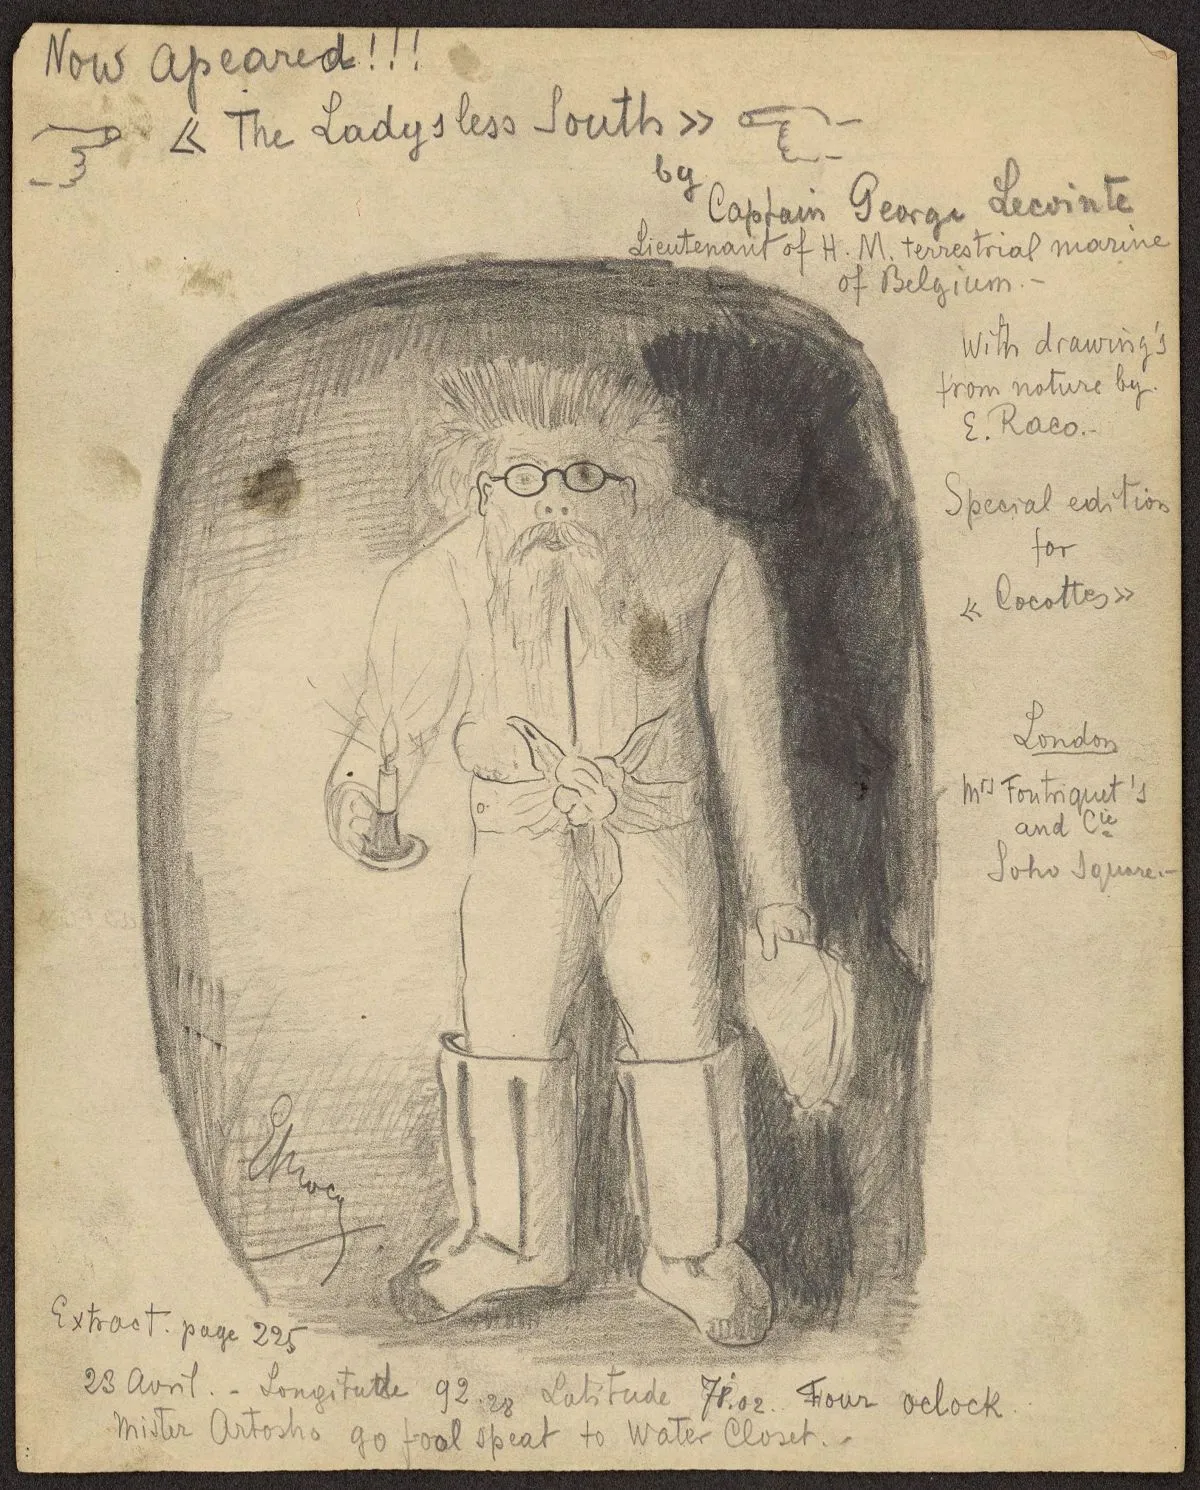 Now apeared!!!
« The Ladysless South »
by
Captain George Lecointe
Lieutenant of H. M. terrestrial marine
of Belgium.-
With drawing's
from nature by.
E. Raco.-
Special edition
for
« Cocottes »
London
Mrs Foutriquet's
and Cie
Soho Square.-
Extract. page 225
23 Avril. - Longitude 92.28 Latitude .02. Four oclock
Mister Artosho go fool speat to Water Closet. -